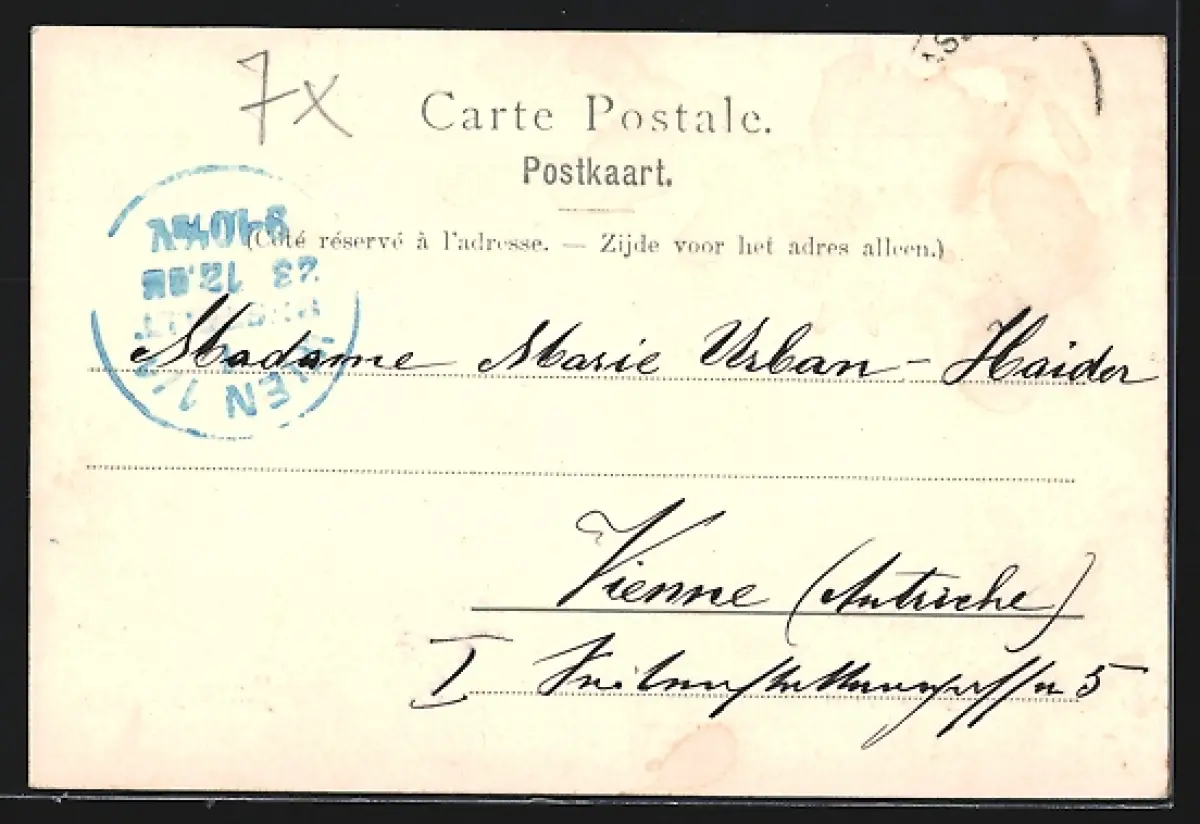 7x
Carte Postale.
Postkaart.
(Côté réservé à l'adresse. — Zijde voor het adres alleen.)
WIEN 1/1
23 12.
Madame Marie Urban - Haider
Vienne (Autriche)
I 5